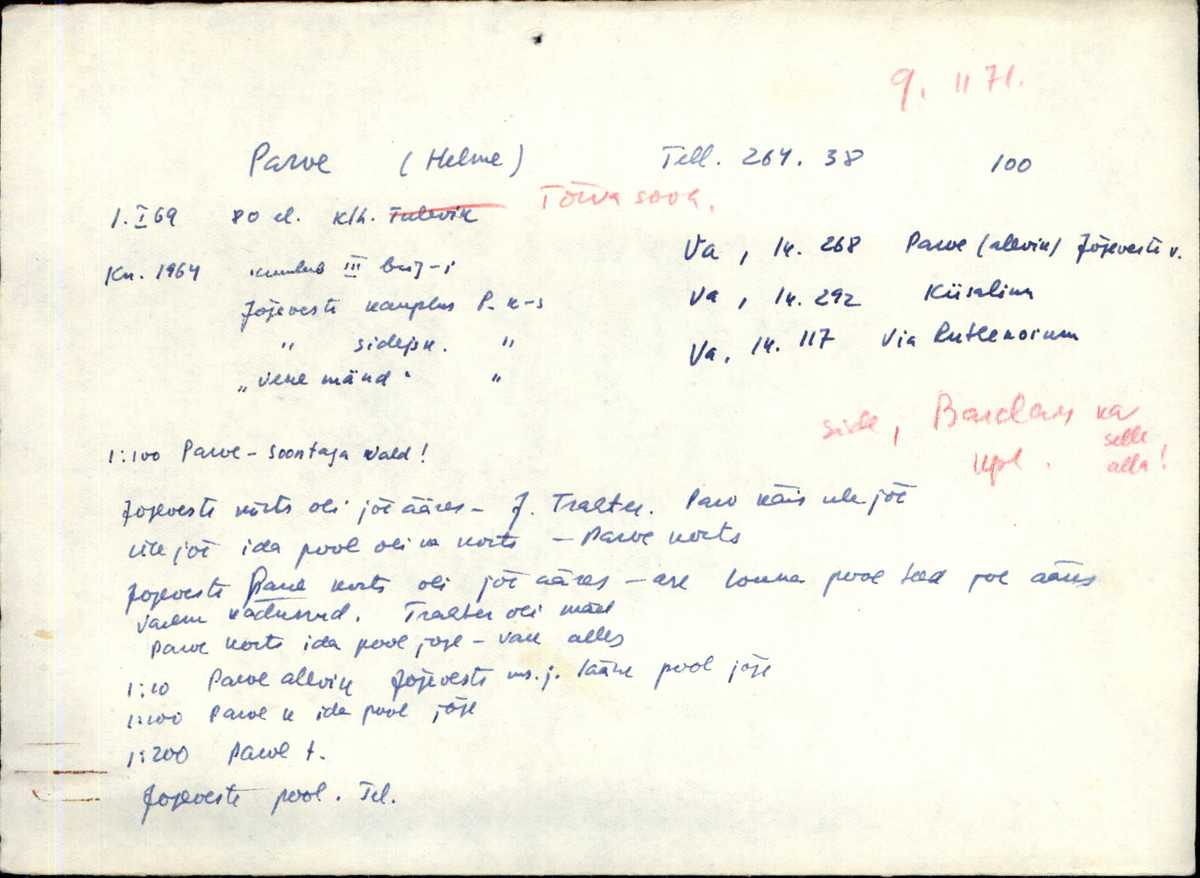 9. II 71.
Parve (Helme) Tell. 264. 38 100
1. I 69 80 el. klh. Tulevik Tõrva sook.
Kn. 1964 kuulub III brig-i
Jõgeveste kauplus P. k-s
" sidejsk. "
"Vene mänd" "
Va, 14. 268 Parve (alevik) Jõgeveste v.
Va, 14. 292 Kiisaliina
Va, 14. 117 Via Ruthenorum
side, Barclay ka
selle
alla!
1:100 Parve - Soontaga vald!
Jõgeveste kõrts oli jõe ääres - J. Trahter. Parv käis üle jõe
üle jõe ida pool oli ka kõrts - Parve kõrts
Jõgeveste kõrts oli jõe ääres - ase lõuna pool teed jõe ääres
varem kadunud. Trahter oli mäel
Parve kõrts ida pool jõge - vare alles
1:10 Parve alevik Jõgeveste ms. j. lääne pool jõge
1:100 Parve k ida pool jõge
1:200 Parve t.
Jõgeveste pool. Tel.